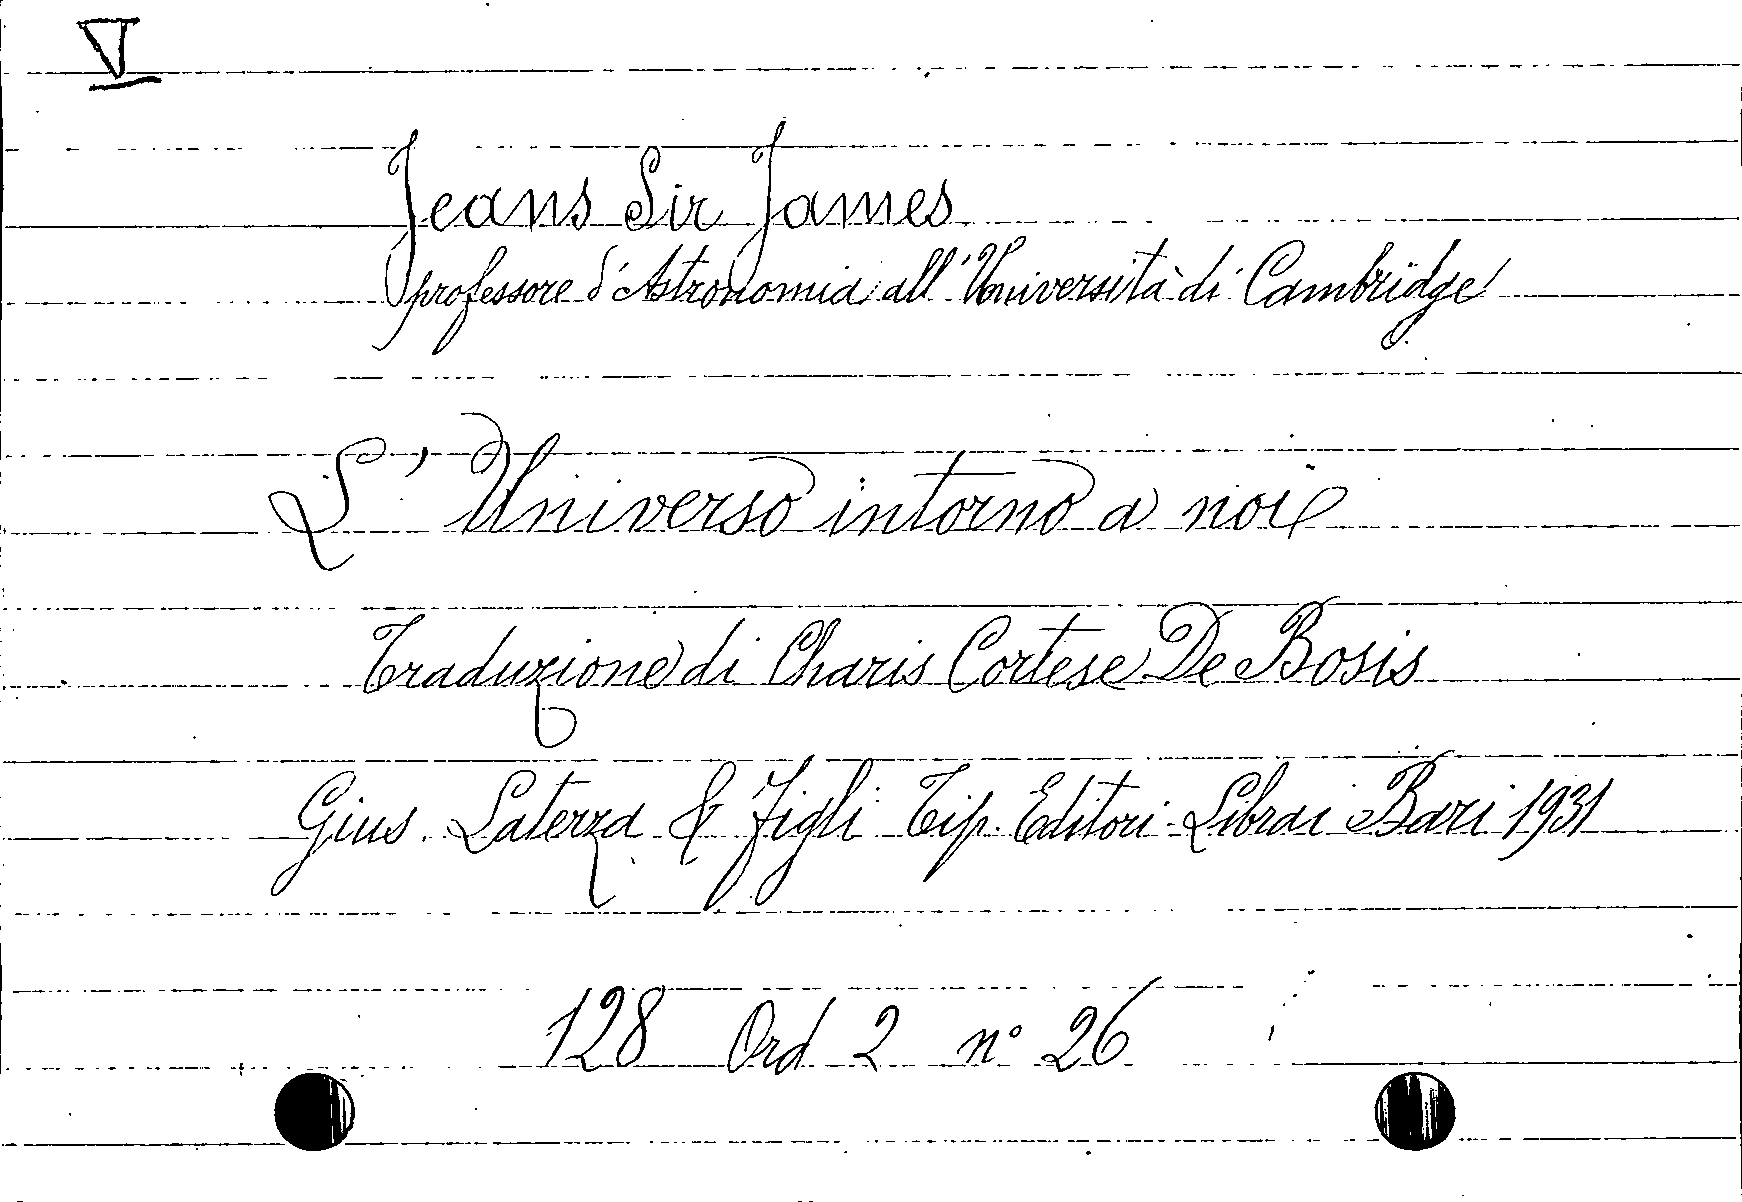 V
Jeans Sir James
professore d'Astronomia all'Università di Cambridge
L'Universo intorno a noi
Traduzione di Charis Cortese De Bosis
Gius. Laterza & Figli Tip. Editori-Librai Bari 1931
128 Ord 2 n° 26